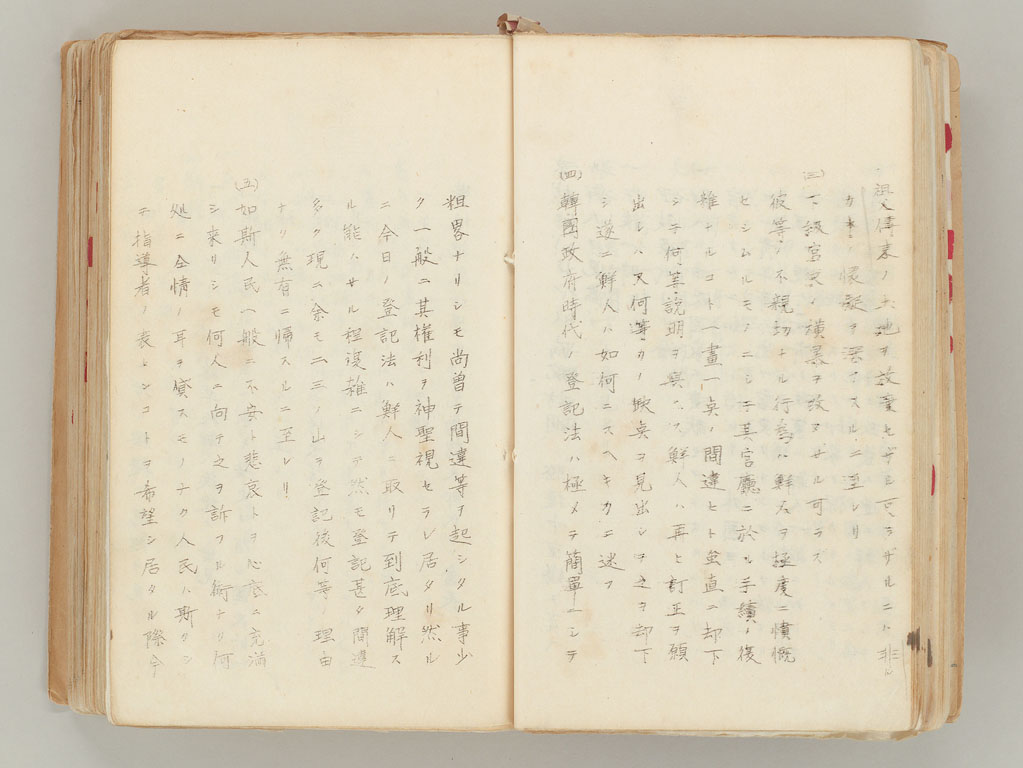 祖父伝来ノ土地ヲ放棄セザル可ラザルニハ非ル
カト懐疑ヲ深フスルニ至レリ
(三)下級官吏ノ横暴ヲ改メザル可ラズ
彼等ノ不親切ナル行為ハ鮮人ヲ極度ニ憤慨
セシムルモノニシテ其官廳ニ於ル手續ノ復
雑ナルコト一畫一点ノ間違ヒト虽直ニ却下
シテ何等説明ヲ与ヘス鮮人ハ再ヒ訂正ヲ願
出レハ又何等カノ欠点ヲ見出シテ之ヲ却下
シ遂ニ鮮人ハ如何ニスヘキカニ迷フ
(四)韓國政府時代ノ登記法ハ極メテ簡單ニシテ
粗畧ナリシモ尚曽テ間違等ヲ起シタル事少
ク一般ニ其権利ヲ神聖視セラレ居タリ然ル
ニ今日ノ登記法ハ鮮人ニ取リテ到底理解ス
ル能ハサル程復雑ニシテ然モ登記甚タ間違
多ク現ニ余モ二三ノ山ヲ登記後何等ノ理由
ナリ無有ニ帰スルニ至レリ
(五)如斯人民一般ニ不安ト悲哀トヲ心底ニ充満
シ来リシモ何人ニ向テ之ヲ訴フル術ナリ何
処ニ全情ノ耳ヲ貸スモノナク人民ハ斯クシ
テ指導者ノ表レンコトヲ希望シ居タル際今